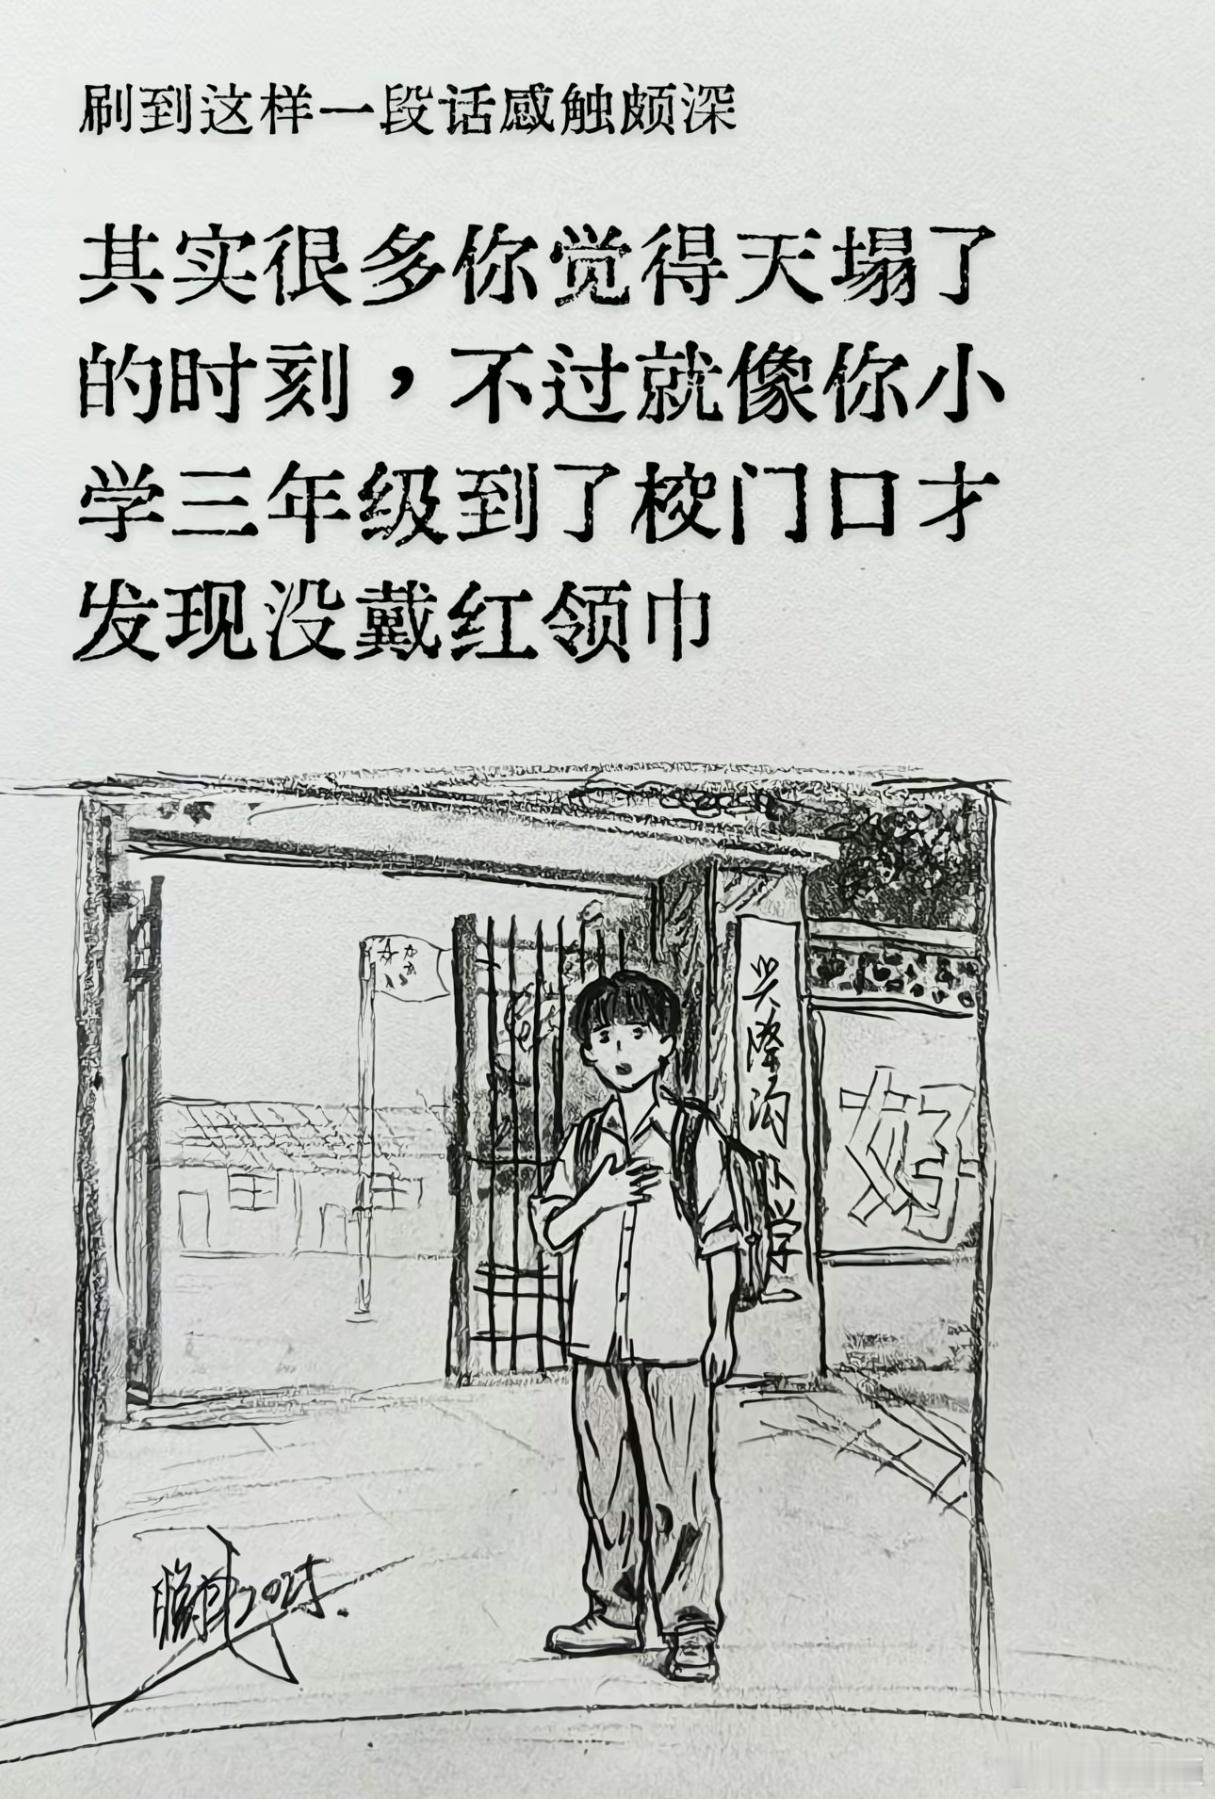 刷到这样一段话感触颇深
其实很多你觉得天塌了
的时刻，不过就像你小
学三年级到了校门口才
发现没戴红领巾
兴隆沟小学
好
2025.